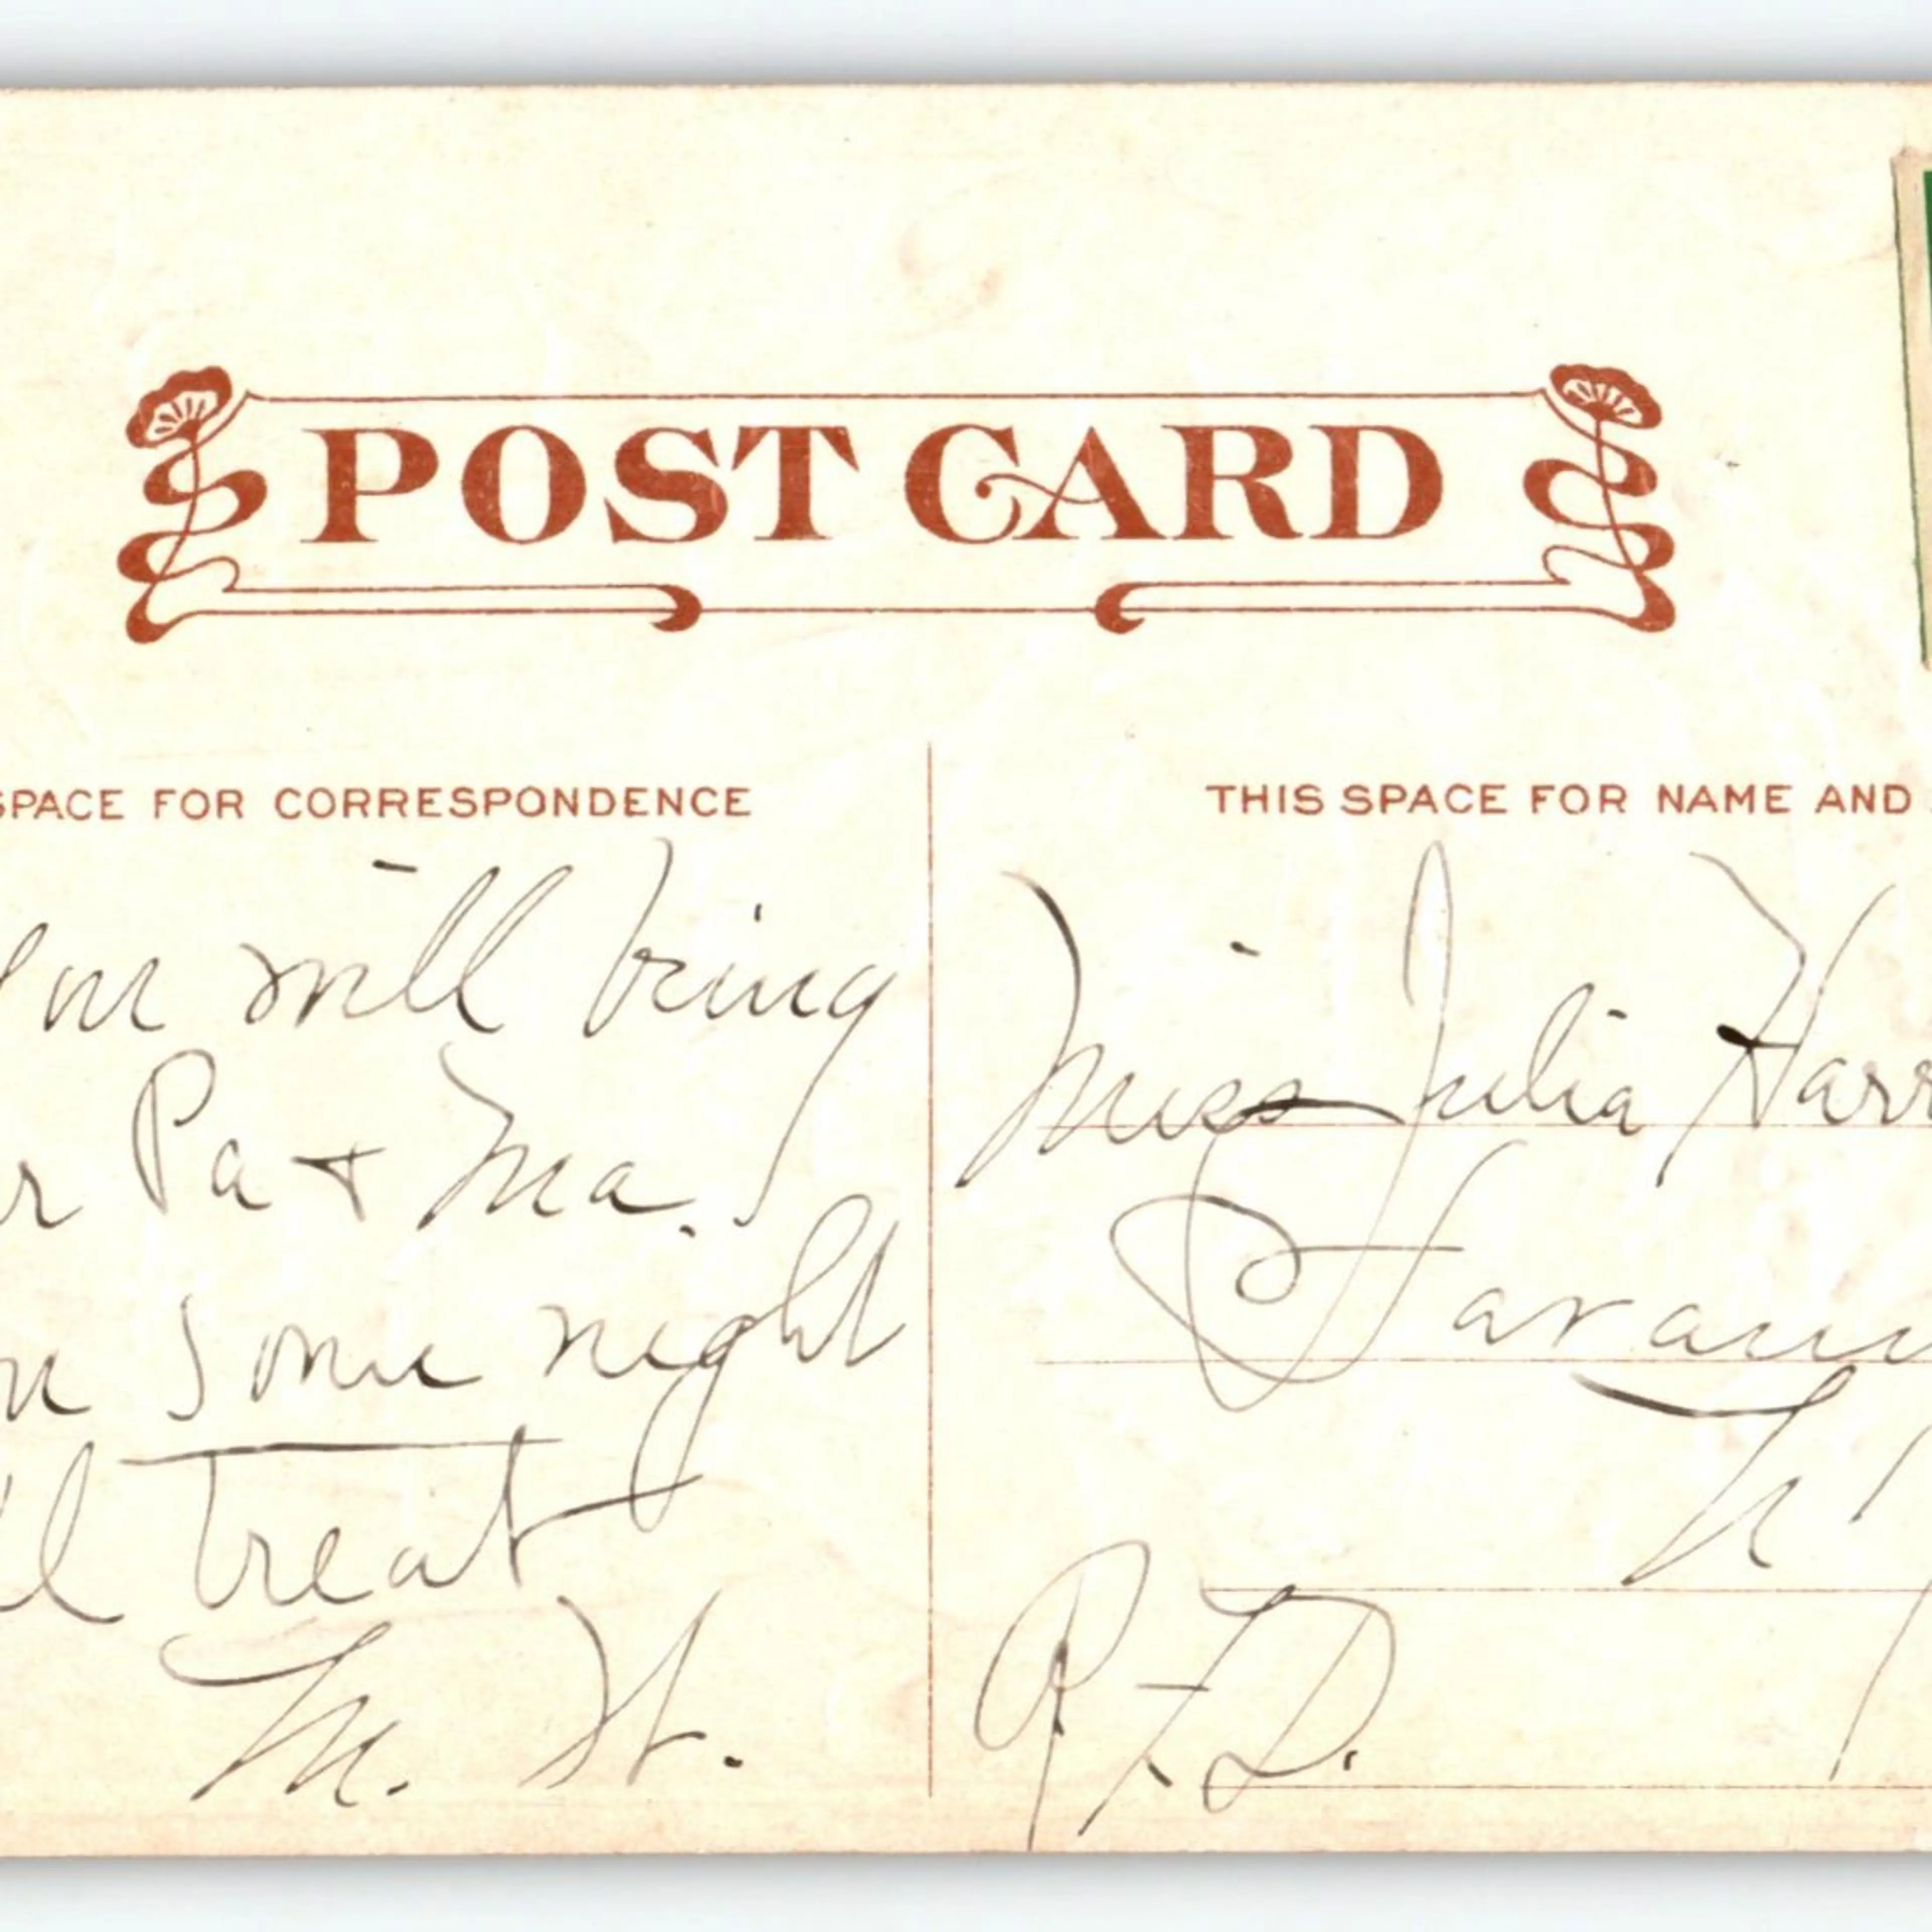 POST CARD
SPACE FOR CORRESPONDENCE
you will bring
r Pa + Ma.
n some night
'l treat
M. H.
THIS SPACE FOR NAME AND
Miss Julia Harr
N
R.F.D.